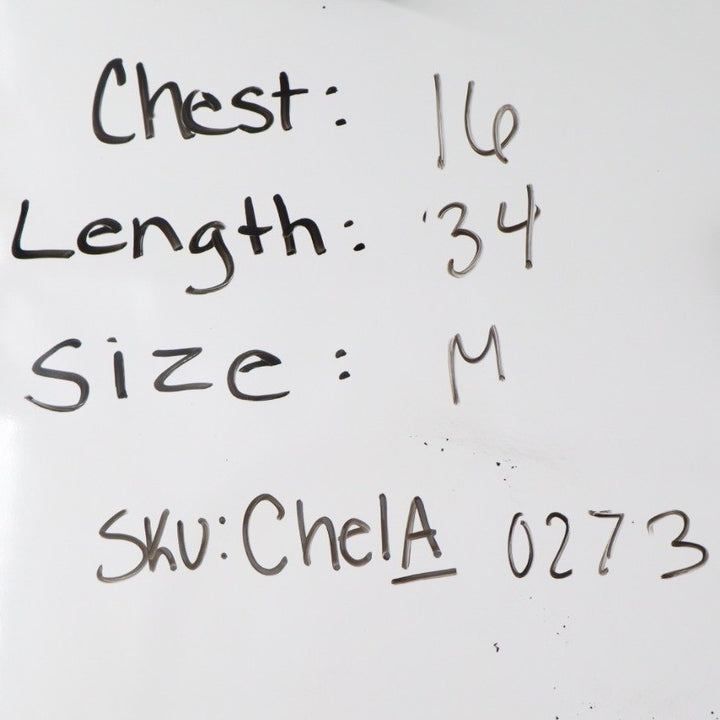 Chest: 16
Length: 34
Size: M
SKU: ChelA 0273